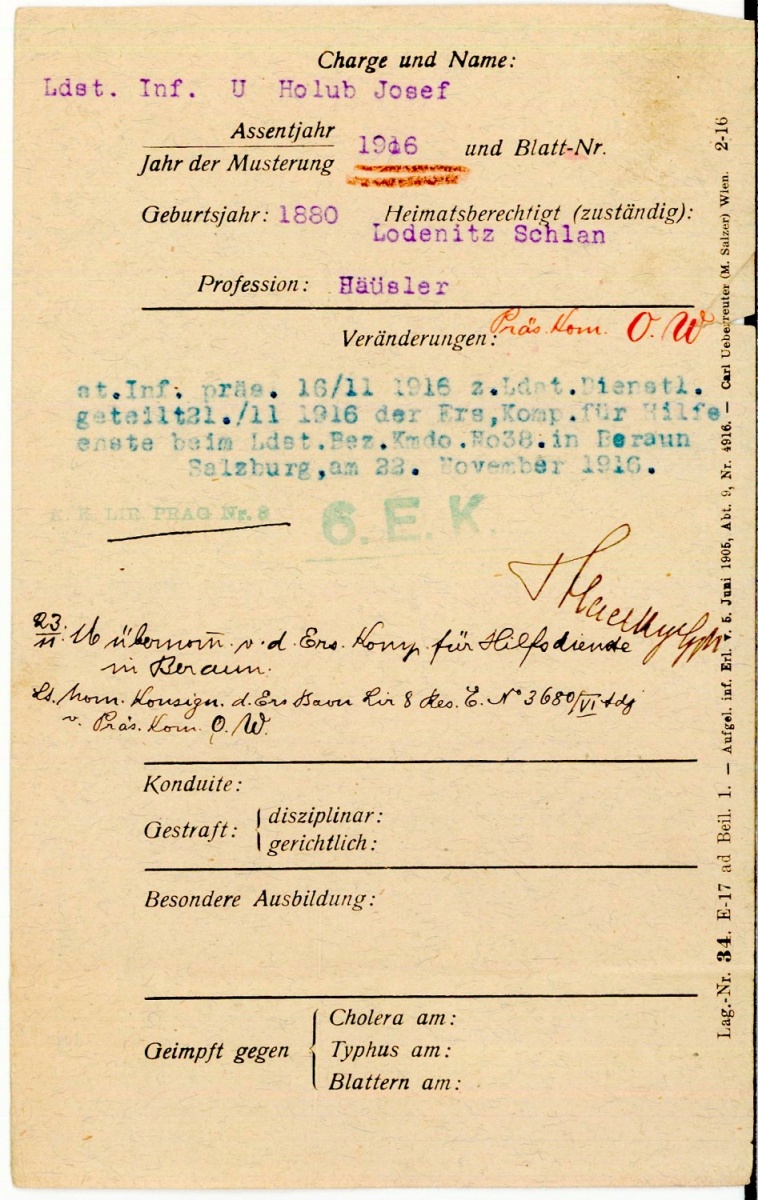 Charge und Name:
Ldst. Inf. U Holub Josef
Assentjahr
Jahr der Musterung 1916 und Blatt-Nr.
Geburtsjahr: 1880 Heimatsberechtigt (zuständig):
Lodenitz Schlan
Profession: Häüsler
Veränderungen: Präs. Kom. O. W
st.Inf. präs. 16/11 1916 z.Ldst.Dienstl.
geteilt21./11 1916 der Ers,Komp.für Hilfs
enste beim Ldst.Bez.Kmdo.No38.in Beraun
Salzburg,am 22. November 1916.
K. K. LIR PRAG Nr. 8 6. E. K.
23/11. 16 übernom̄. v. d. Ers. Komp. für Hilfsdienste
in Beraun.
Lt. Nom. Konsign. d. Ers Baon Lir 8 Res. E. No 3680/VI tdg
v. Präs. Kom. O. W.
Konduite:
Gestraft: disziplinar:
gerichtlich:
Besondere Ausbildung:
Geimpft gegen
Cholera am:
Typhus am:
Blattern am:
Lag.-Nr. 34. E-17 ad Beil. 1. — Aufgel. inf. Erl. v. 5. Juni 1905, Abt. 9, Nr. 4916. — Carl Ueberreuter (M. Salzer) Wien. 2-16